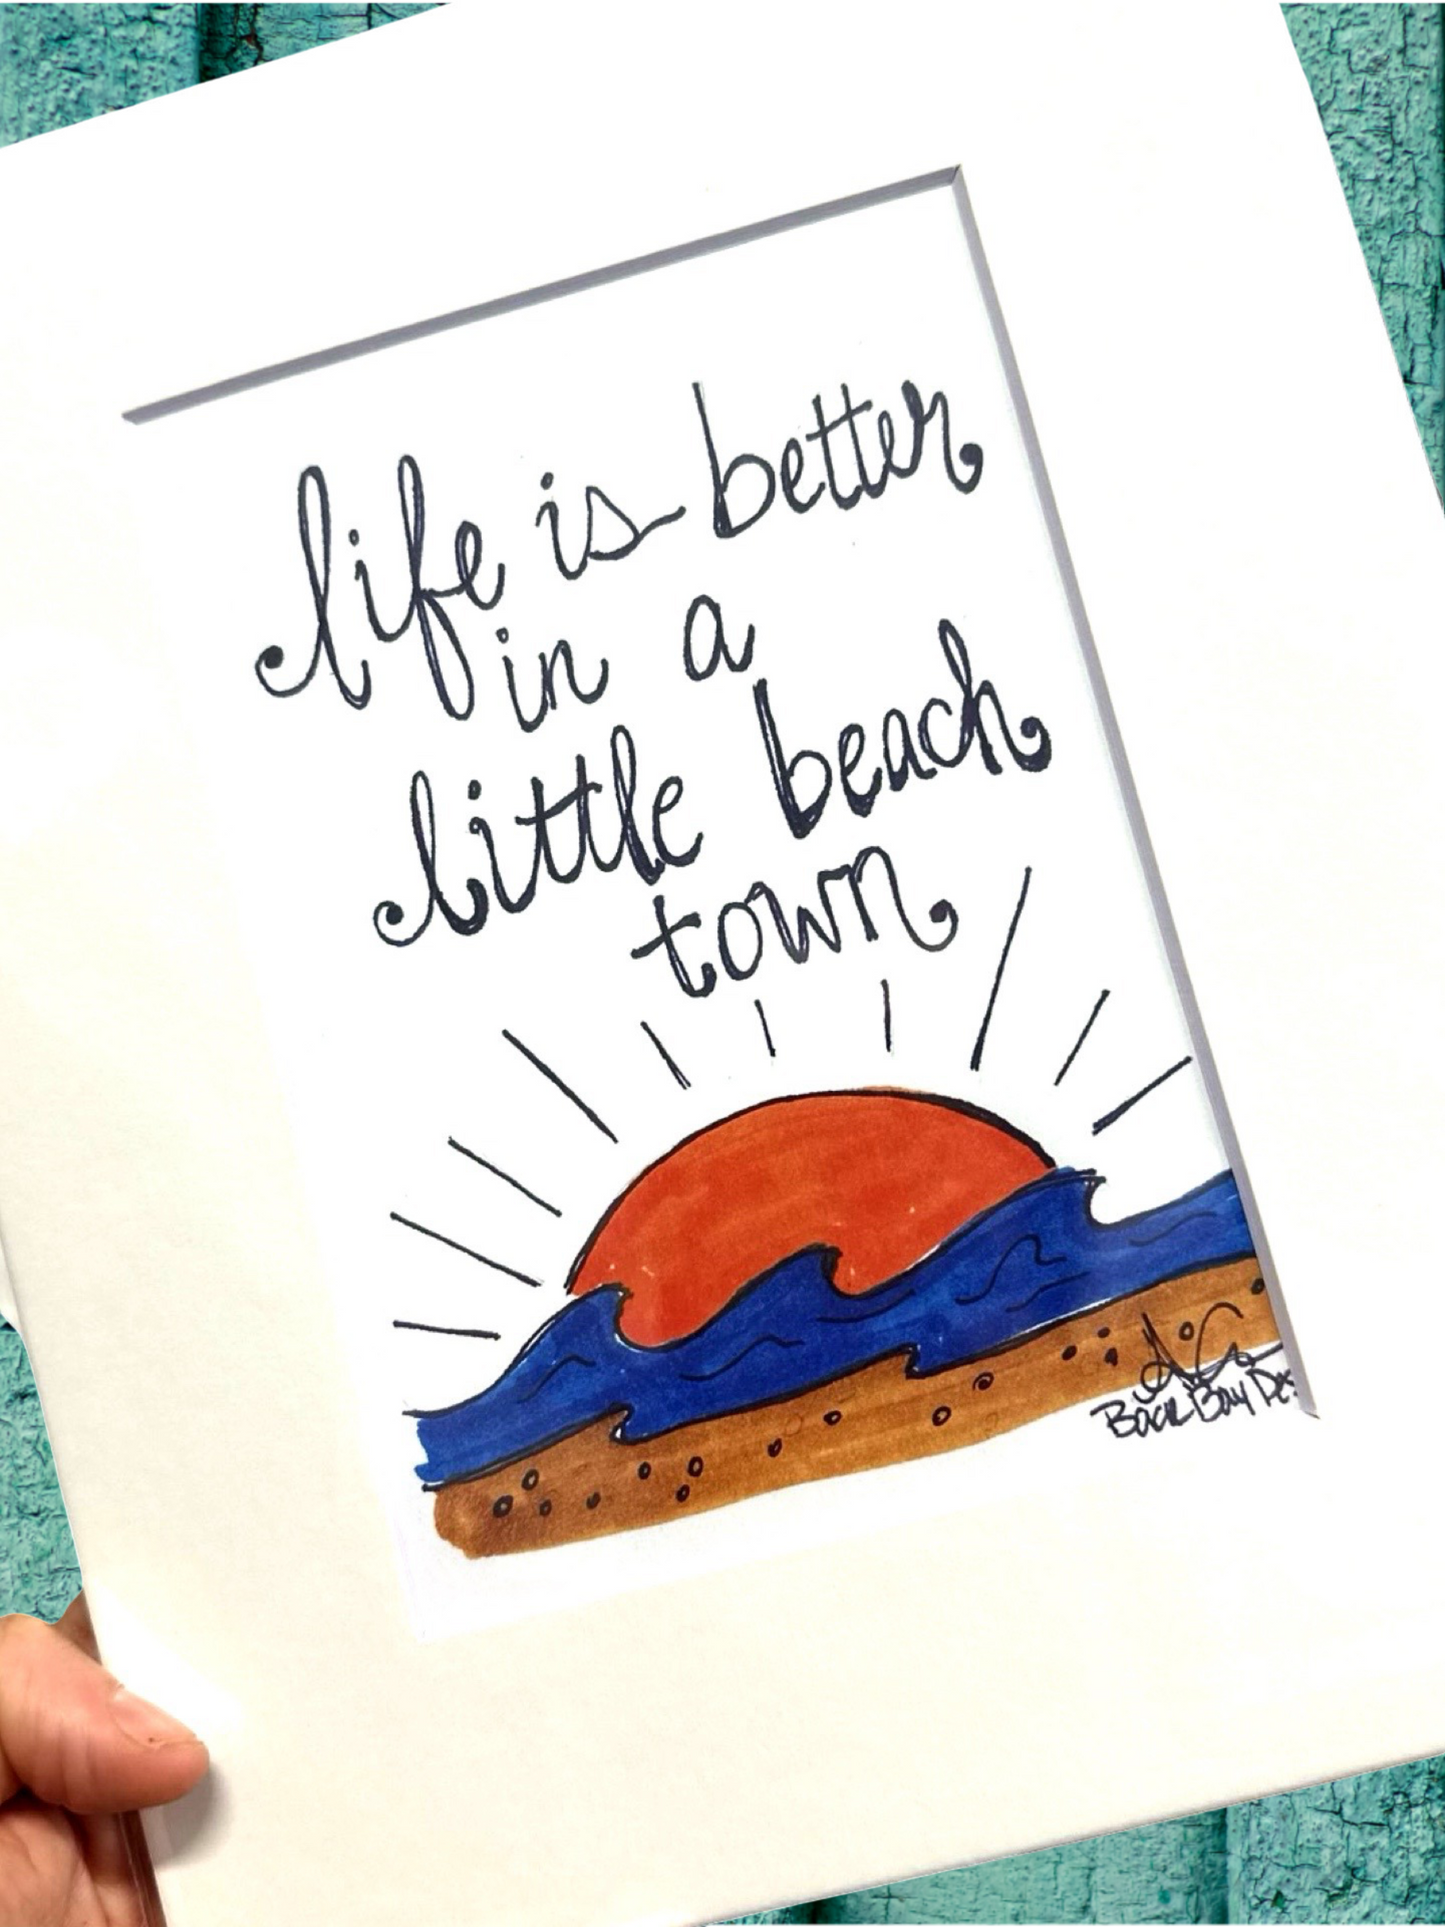 life is better
in a
little beach
town
Back Bay Des